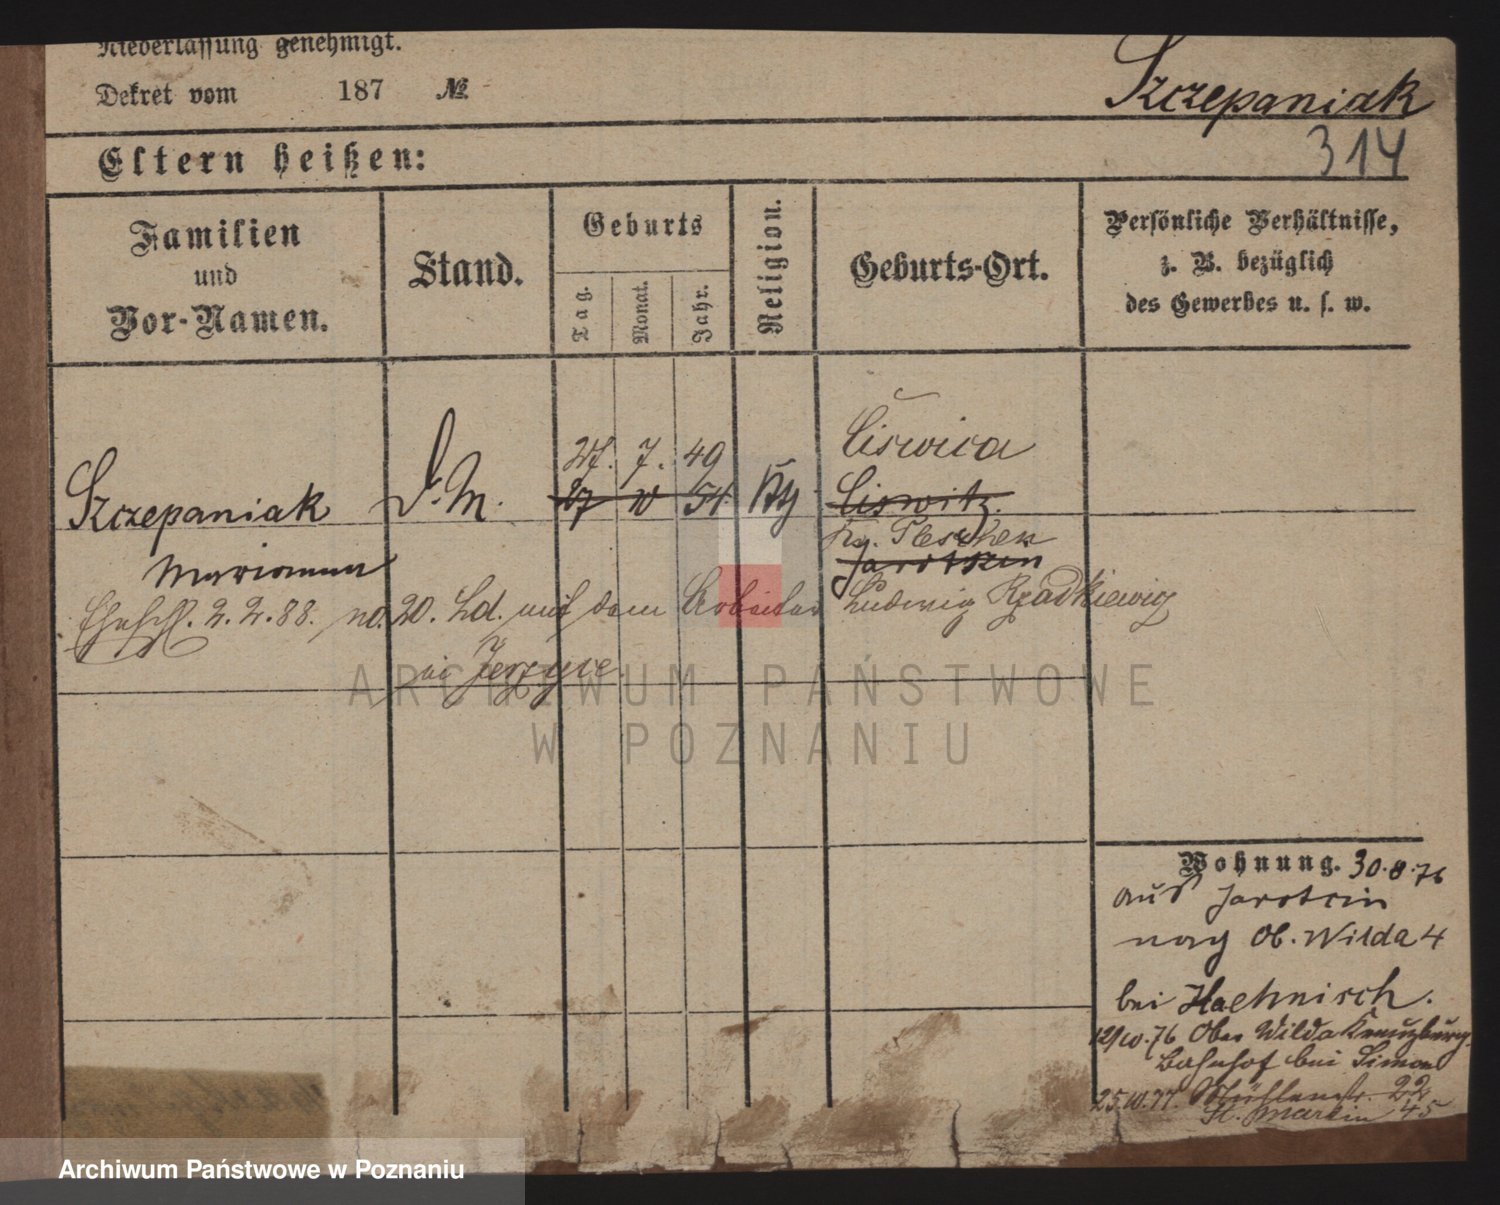 Niederlassung genehmigt.
Dekret vom 187 №
Szczepaniak
314
Eltern heißen:
Familien und Vor-Namen.
Stand.
Geburts
Tag.
Monat.
Jahr.
Religion.
Geburts-Ort.
Persönliche Verhältnisse,
z. B. bezüglich
des Gewerbes u. s. w.
Ciświca
27. 7. 49
Szczepaniak D. M. 27 10 54 Kth Ciswitz.
Kr. Pleschen
Jarotschin
Marianna
Ehesch. 2.2.88. no. 20. Ld. mit dem Arbeiter Ludwig Rzadkiewicz
in Jerzyce.
ARCHIWUM PAŃSTWOWE
W POZNANIU
Wohnung. 30.8.76
aus Jarotcin
nach Ob. Wilda 4
bei Haehnisch.
12/10.76 Ober Wilda Kreuzburg.
Bahnhof bei Simon
25.10.77. Mühlenstr. 22
St. Martin 45
Archiwum Państwowe w Poznaniu